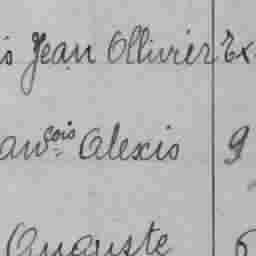 is Jean Ollivier Ex
ançois Alexis 9
Auguste 6